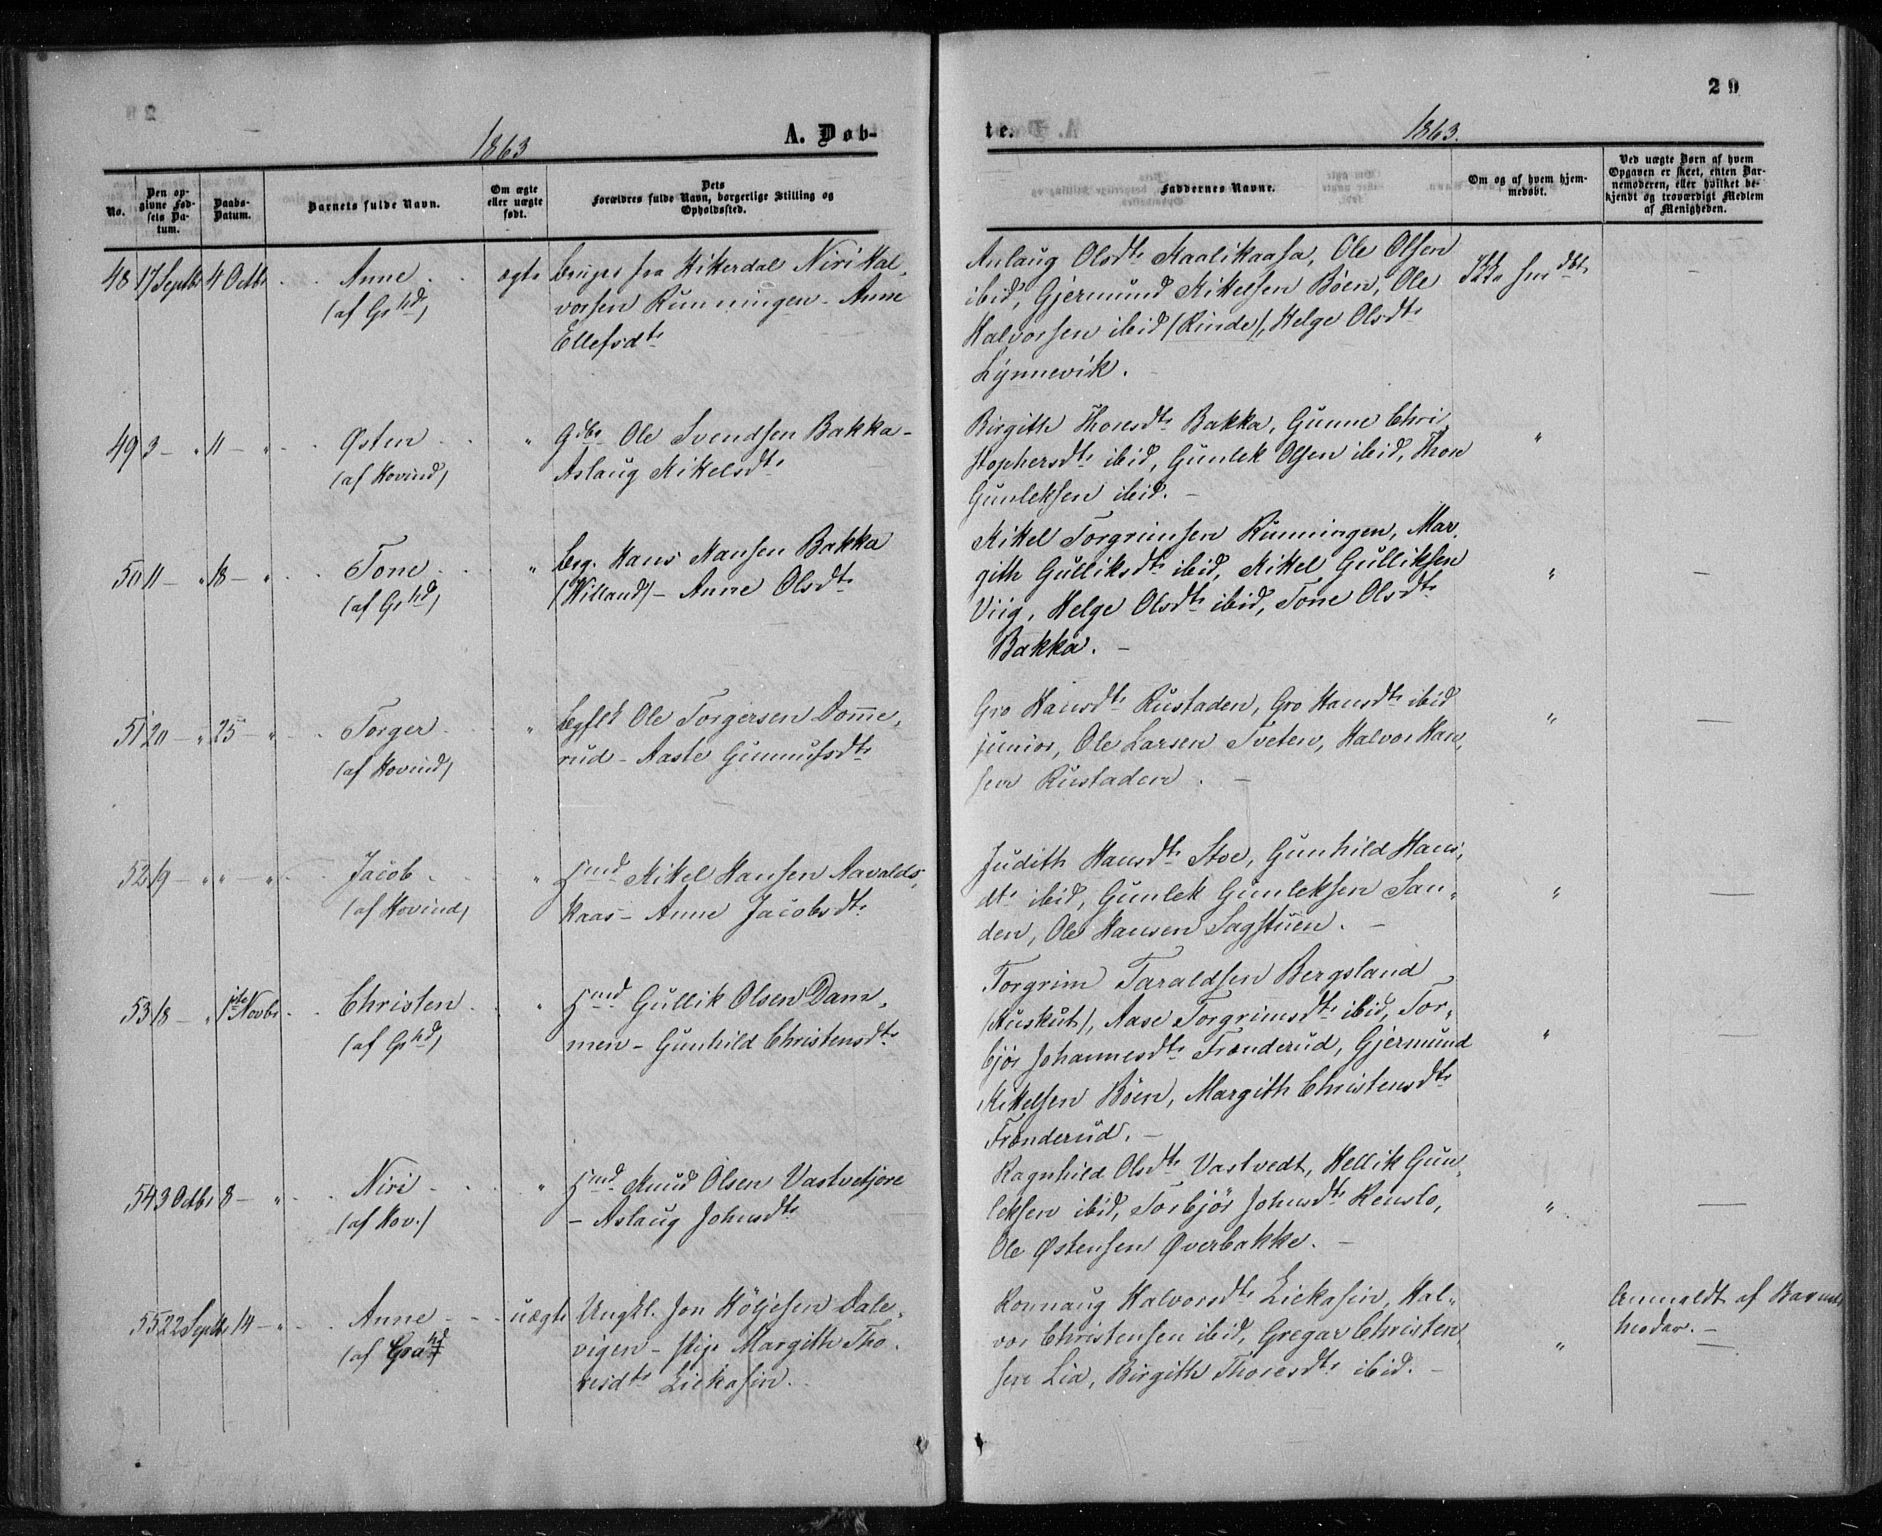 29
1863
A. Døb-
te.
1863.
No.
Den op-
givne Fød-
sels Da-
tum.
Daabs-
Datum.
Barnets fulde Navn.
Om ægte
eller uægte
født.
Dets
Forældres fulde Navn, borgerlige Stilling og
Opholdssted.
Faddernes Navne.
Om og af hvem hjem-
medøbt.
Ved uægte Børn af hvem
Opgaven er skeet, enten Bar-
nemoderen, eller hvilket be-
kjendt og troværdigt Medlem
af Menigheden.
48 17 Septbr 4 Octbr Anne ægte Niri Hal-
(af Grhd)
vorsen Runningen - Anne
Ellefsdtr
Anlaug Olsdtr Kaalikaasa, Ole Olsen
ibid, Gjermund Kittelsen Böen, Ole
Halvorsen ibid (Rinde), Helge Olsdtr
Lynnevik.
49 3 - " 11 - " Østen " Gdbr Ole Svendsen Bakka -
(af Hovind) Aslaug Kittelsdtr
Birgith Thoresdtr Bakka, Gunne Chri-
stophersdtr ibid, Gunlek Olsen ibid, Thore
Gunleksen ibid. -
"
50 11 - " 18 - " Tone " brg. Hans Hansen Bakka
(af Grhd) (Willand) - Anne Olsdtr
Kittel Torgrimsen Runningen, Mar-
gith Gulliksdtr ibid, Kittel Gulliksen
Viig, Helge Olsdtr ibid, Tone Olsdtr
Bakka. -
" -
51 20 - " 25 - " Torger " Ole Torgersen Domme-
(af Hovind) rud - Aaste Gunnufsdtr
Gro Hansdtr Rustaden, Gro Hansdtr ibid
junior, Ole Larsen Tveten, Halvor Han-
sen Rustaden. -
" -
52 19 - " " - " Jacob " Hmd Kittel Hansen Aavalds-
(af Hovind) kaas - Anne Jacobsdtr
Judith Hansdtr Stoe, Gunhild Hans-
dtr ibid, Gunlek Gunleksen San-
den, Ole Hansen Sagstuen. -
" -
53 18 - " 1ste Novbr Christen " Hmd Gullik Olsen Dam-
(af Grhd) men - Gunhild Christensdtr
Torgrim Taraldsen Bergsland
(Auskut), Aase Torgrimsdtr ibid, Tor-
bjør Johannesdtr Frønderud, Gjermund
Kittelsen Böen, Margith Christensdtr
Frønderud. -
"
54 3 Octbr 8 - " Niri " Hmd Knud Olsen Vastvetjøre
(af Hov.) - Aslaug Johnsdtr
Ragnhild Olsdtr Vastvedt, Hellik Gun-
leksen ibid, Torbjør Johnsdtr Renslo,
Ole Østensen Øverbakke. -
" -
55 22 Septbr 14 - " Anne uægte Ungkl. Jon Höljesen Dale-
(af Grahd) vigen - Pige Margith Tho-
resdtr Liekasin.
Ronnaug Halvorsdtr Liekasin, Hal-
vor Christensen ibid, Gregar Christen-
sen Lia, Birgith Thoresdtr ibid. -
"
Anmeldt af Barnets
Moder. -